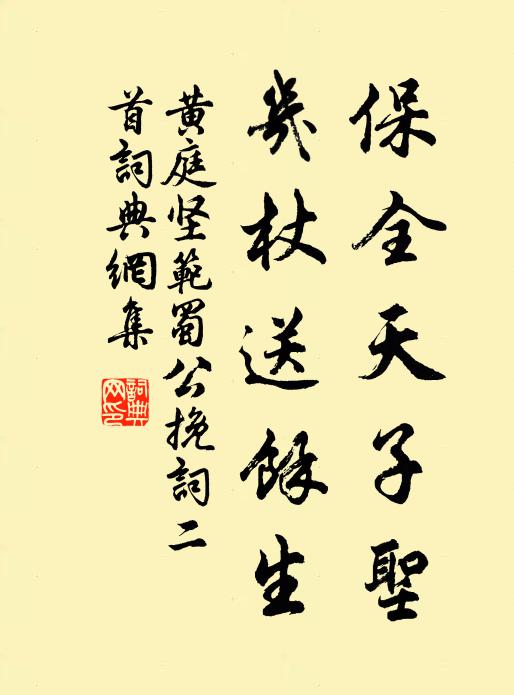 保全天子聖
几杖送餘生
黄庭坚範蜀公挽詞二
首詞典網集
詞典
网印